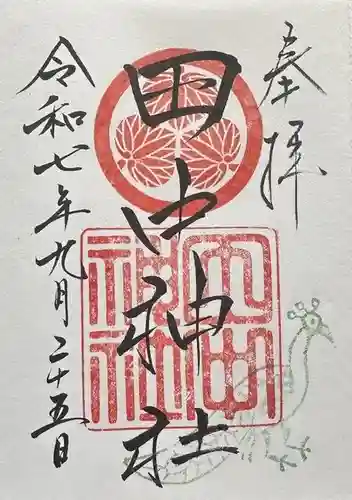 奉拝
田中神社
令和七年九月二十五日
田中
神社